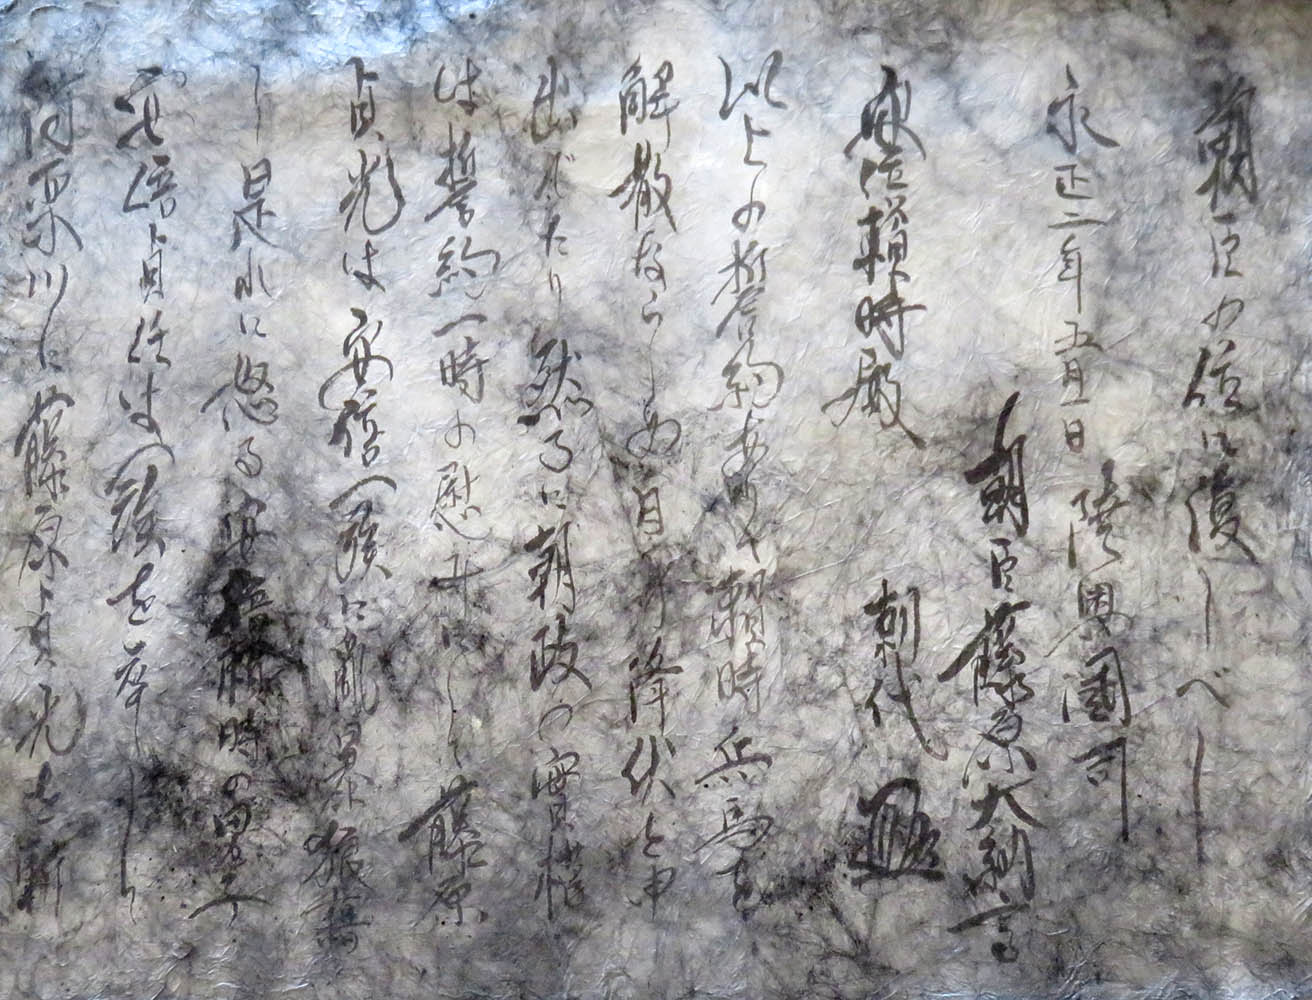 朝臣の位に復しべし
永正二年五月一日 陸奥國司
朝臣藤原大納言
安倍頼時殿 刺代
以上の誓約あり頼時兵馬を
解散ならしめ自ら降伏と申
出でたり然るに朝政の實権
は誓約一時の慰みにし藤原
貞光は安倍一族に乱暴狼藉
し是れに怒る安倍頼時の男子
安倍貞任は一族を挙し
阿栗川に藤原貞光を斬